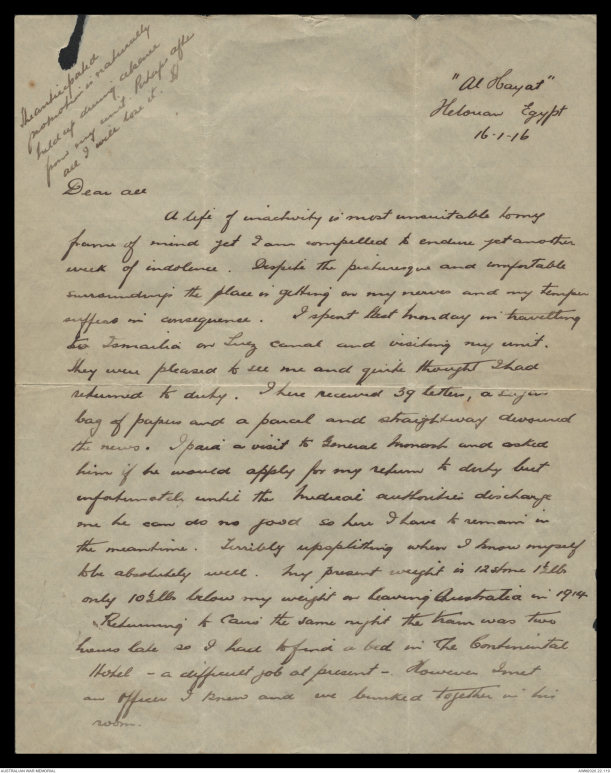 The anticipated
promotion is naturally
held up during absence
from my unit. Perhaps after
all I will lose it.
"Al Hayat"
Helouan Egypt
16-1-16
Dear all
A life of inactivity is most unsuitable to my
frame of mind yet I am compelled to endure yet another
week of indolence. Despite the picturesque and comfortable
surroundings the place is getting on my nerves and my temper
suffers in consequence. I spent last Monday in travelling
to Ismailia on Suez canal and visiting my unit.
They were pleased to see me and quite thought I had
returned to duty. I here received 39 letters, a sugar
bag of papers and a parcel and straightway devoured
the news. I paid a visit to General Monash and asked
him if he would apply for my return to duty but
unfortunately until the Medical authorities discharge
me he can do no good so here I have to remain in
the meantime. Terribly when I know myself
to be absolutely well. My present weight is 12 stone 1½ lbs
only 10½ lbs below my weight on leaving Australia in 1914.
Returning to Cairo the same night the train was two
hours late so I had to find a bed in The Continental
Hotel - a difficult job at present -. However I met
an officer I knew and we bunked together in his
room.
AUSTRALIAN WAR MEMORIAL